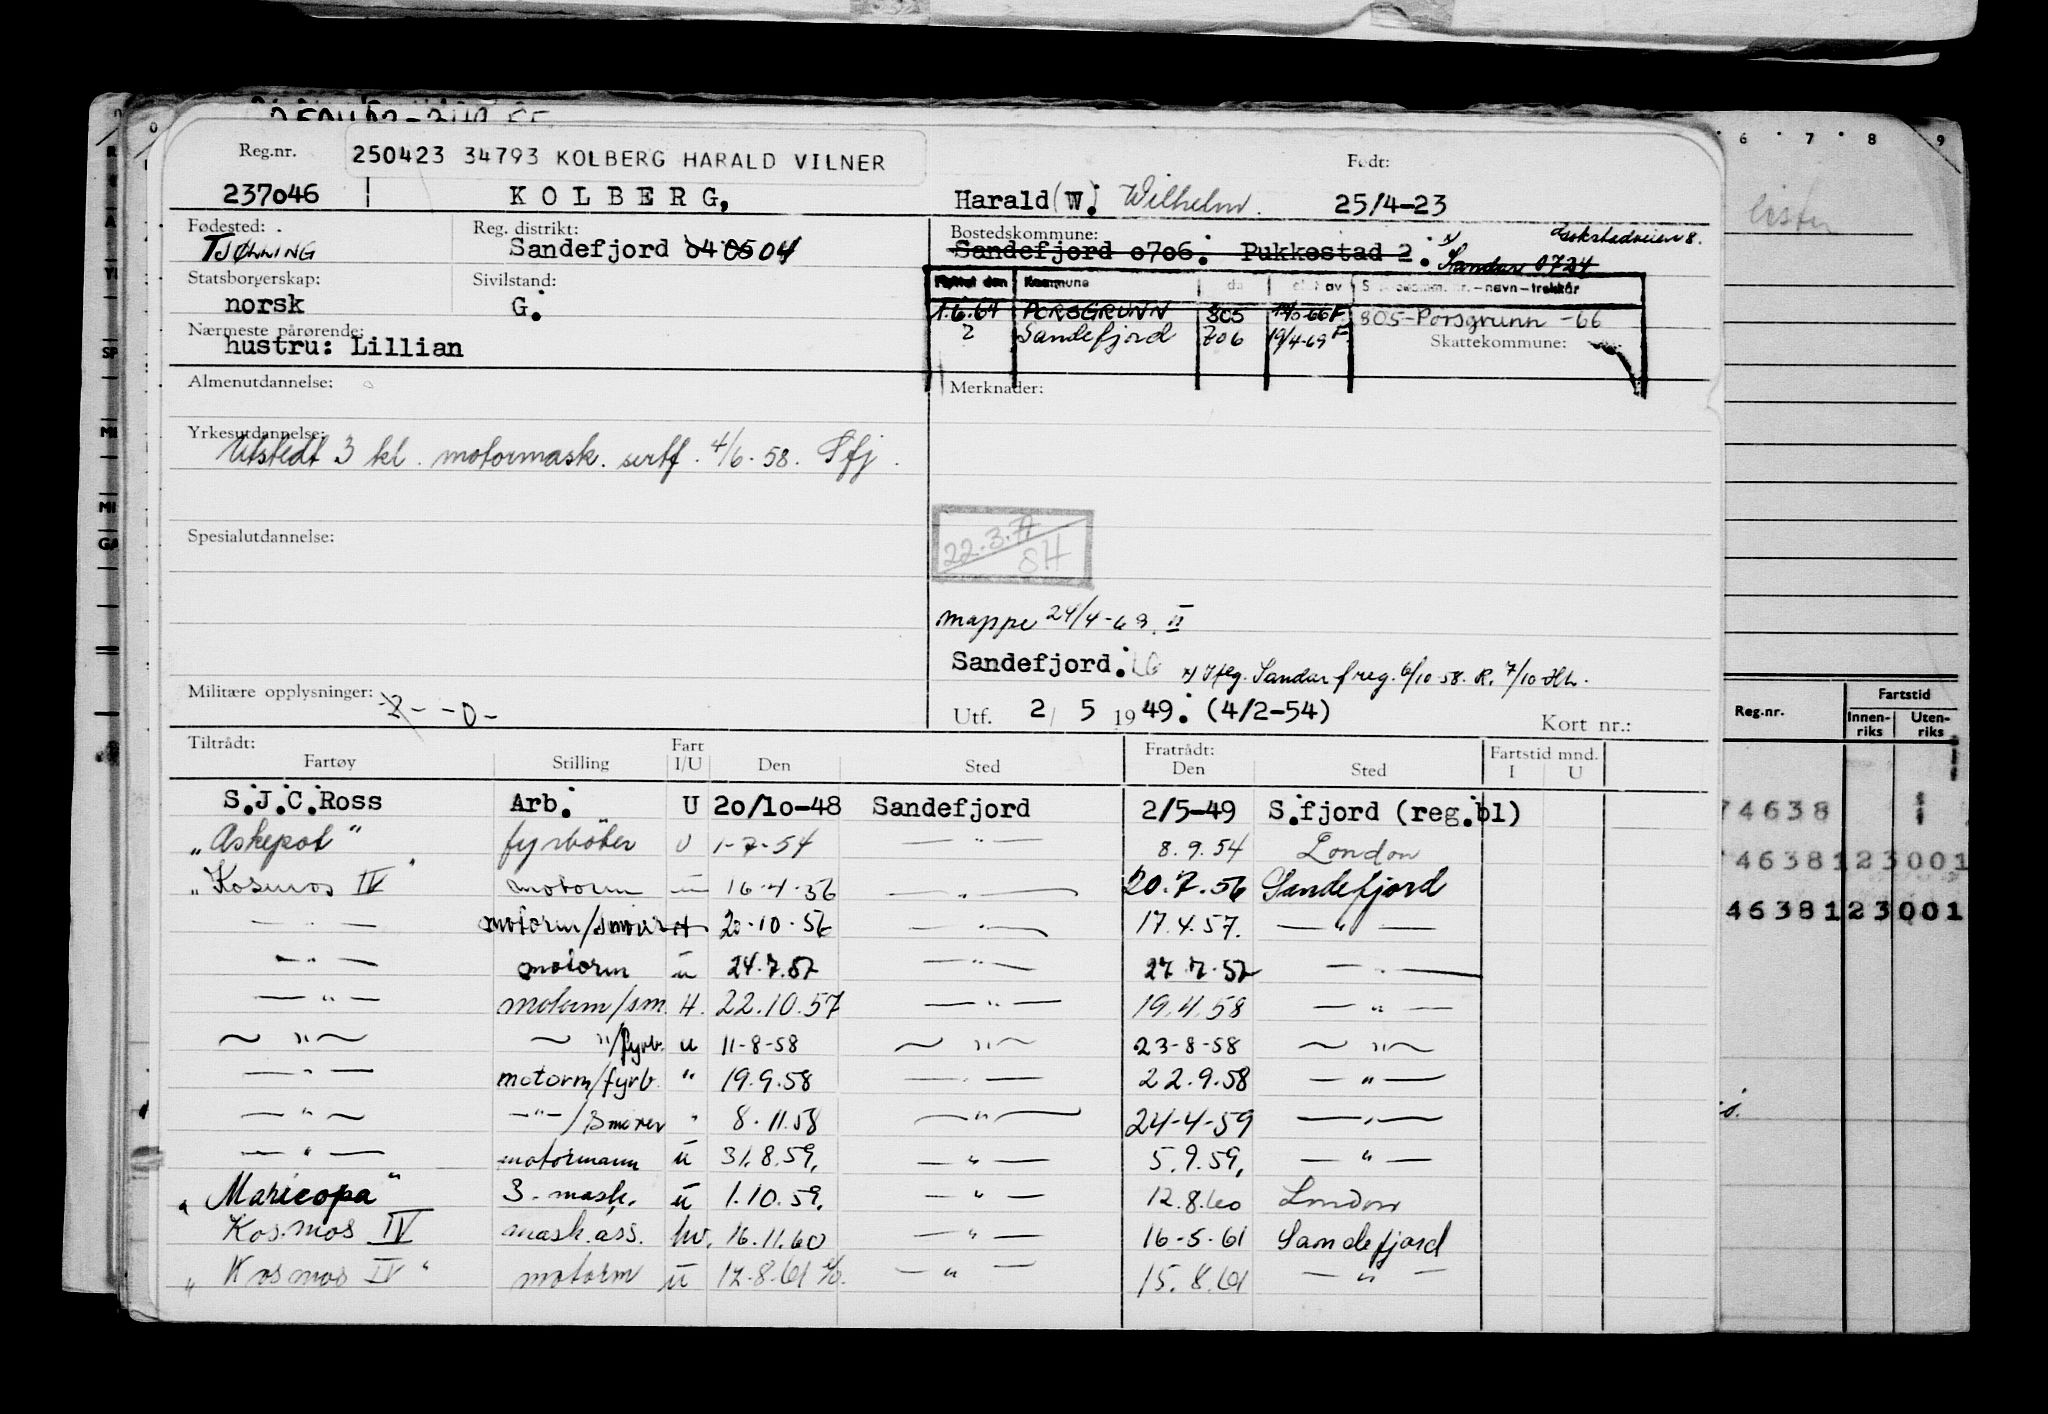 Reg.nr. 250423 34793 KOLBERG HARALD VILNER Født:
237046 KOLBERG, Harald (W). Wilhelm. 25/4-23
Fødested: Reg. distrikt: Bostedskommune:
TJØLLING Sandefjord 04 05 04 Sandefjord 0706. Pukkestad 2. x) Sandar 0724
Statsborgerskap: Sivilstand: Kommune
norsk G. 1.6.64 PORSGRUNN 805 805-Porsgrunn -66
Nærmeste pårørende: ? Sandefjord 706 19/4-69 F. Skattekommune:
hustru: Lillian
Almenutdannelse: Merknader:
Yrkesutdannelse:
Utstedt 3 kl. motormask. sertf. 4/6-58. Sfj.
Spesialutdannelse: 22.3.77
SH
mappe 24/4-69. II
Sandefjord. x) Iflg. Sandar freg. 6/10 58. R. 7/10 HL.
Militære opplysninger: -2- -0-
Utf. 2/ 5 1949. (4/2-54) Kort nr.:
Tiltrådt: Fratrådt: Fartstid mnd.
Fartøy Stilling Fart I/U Den Sted Den Sted I U
S.J.C.Ross Arb. U 20/10-48 Sandefjord 2/5-49 S.fjord (reg.bl)
"Askepot" fyrbøter U 1-7-54 — " — 8.9.54 London
"Kosmos IV" motorm — 16-4-56 — " — 20.7.56 Sandefjord
— " — motorm/smører H 20-10-56 — " — 17.4.57. — " —
— " — motorm u 24.7.57 — " — 27.7.57 — " —
— " — motorm/sm. H. 22.10.57 — " — 19.4.58 — " —
— " — — " /fyrb. u 11-8-58 — " — 23-8-58 — " —
— " — motorm/fyrb. " 19.9.58 — " — 22.9.58 — " —
— " — — " — /Smører " 8.11.58 — " — 24-4-59 — " —
— " — motormann u 31.8.59. — " — 5.9.59. — " —
"Maricopa" 3. mask. u 1.10.59. — " — 12.8.60 London
Kosmos IV mask.ass. hv. 16.11.60 — " — 16-5-61 Sandefjord
"Kosmos IV" motorm u 12.8.61 — " — 15.8.61 — " —
6 7 8 9
Reg.nr. Fartstid
Innen-riks Uten-riks
74638
4638123001
4638123001